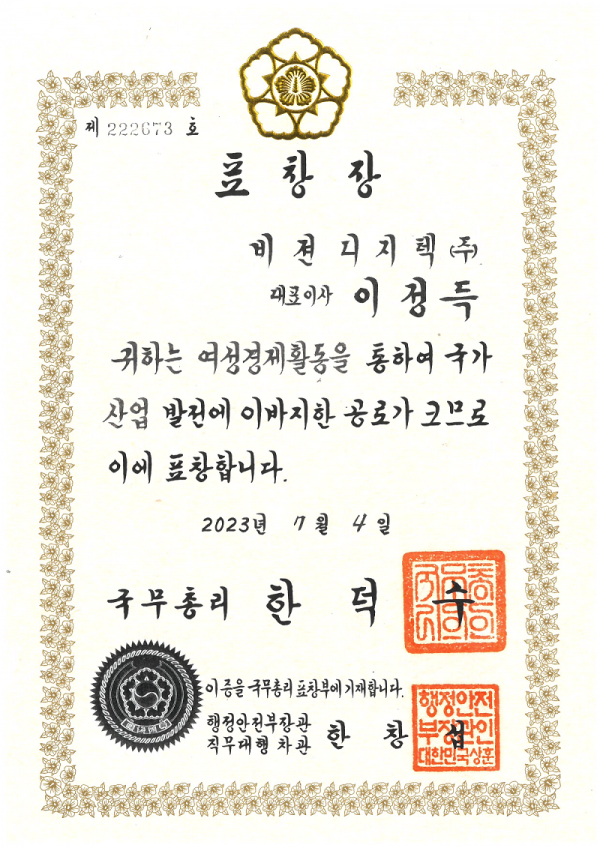 제 222673 호
표창장
비젼디지텍(주)
대표이사 이정득
귀하는 여성경제활동을 통하여 국가
산업 발전에 이바지한 공로가 크므로
이에 표창합니다.
2023년 7월 4일
국무총리 한덕수
이 증을 국무총리 표창부에 기재합니다.
행정안전부장관
직무대행 차관 한창섭
행정안전
부장관인
대한민국상훈